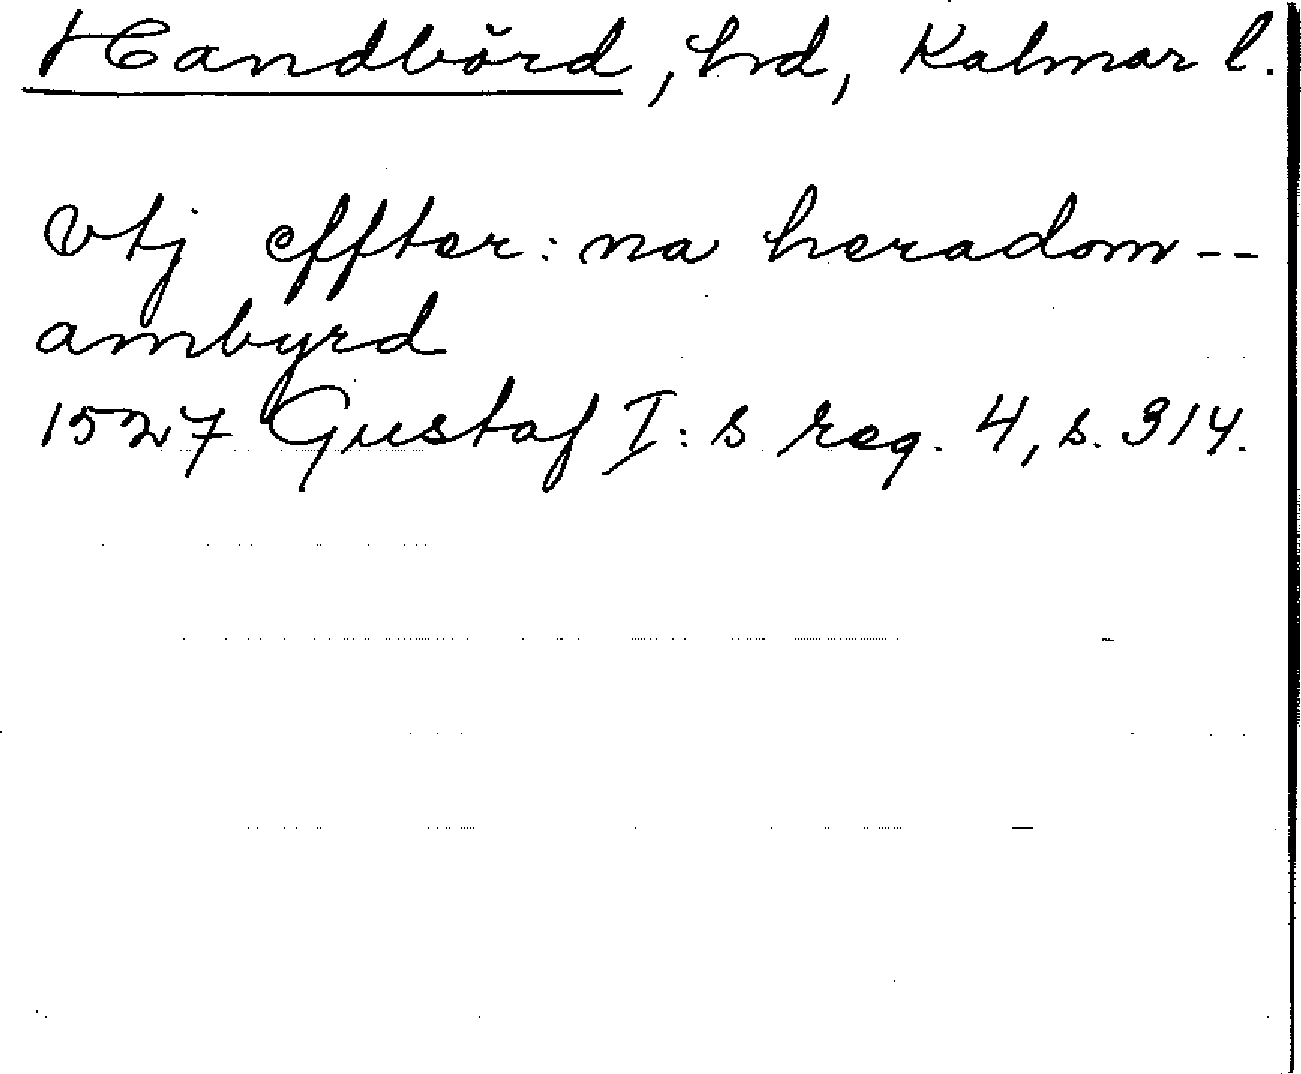 Handbörd, hd, Kalmar l.
vtj effter: na heradom --
ambyrd
1527 Gustaf I: s reg. 4, s. 314.